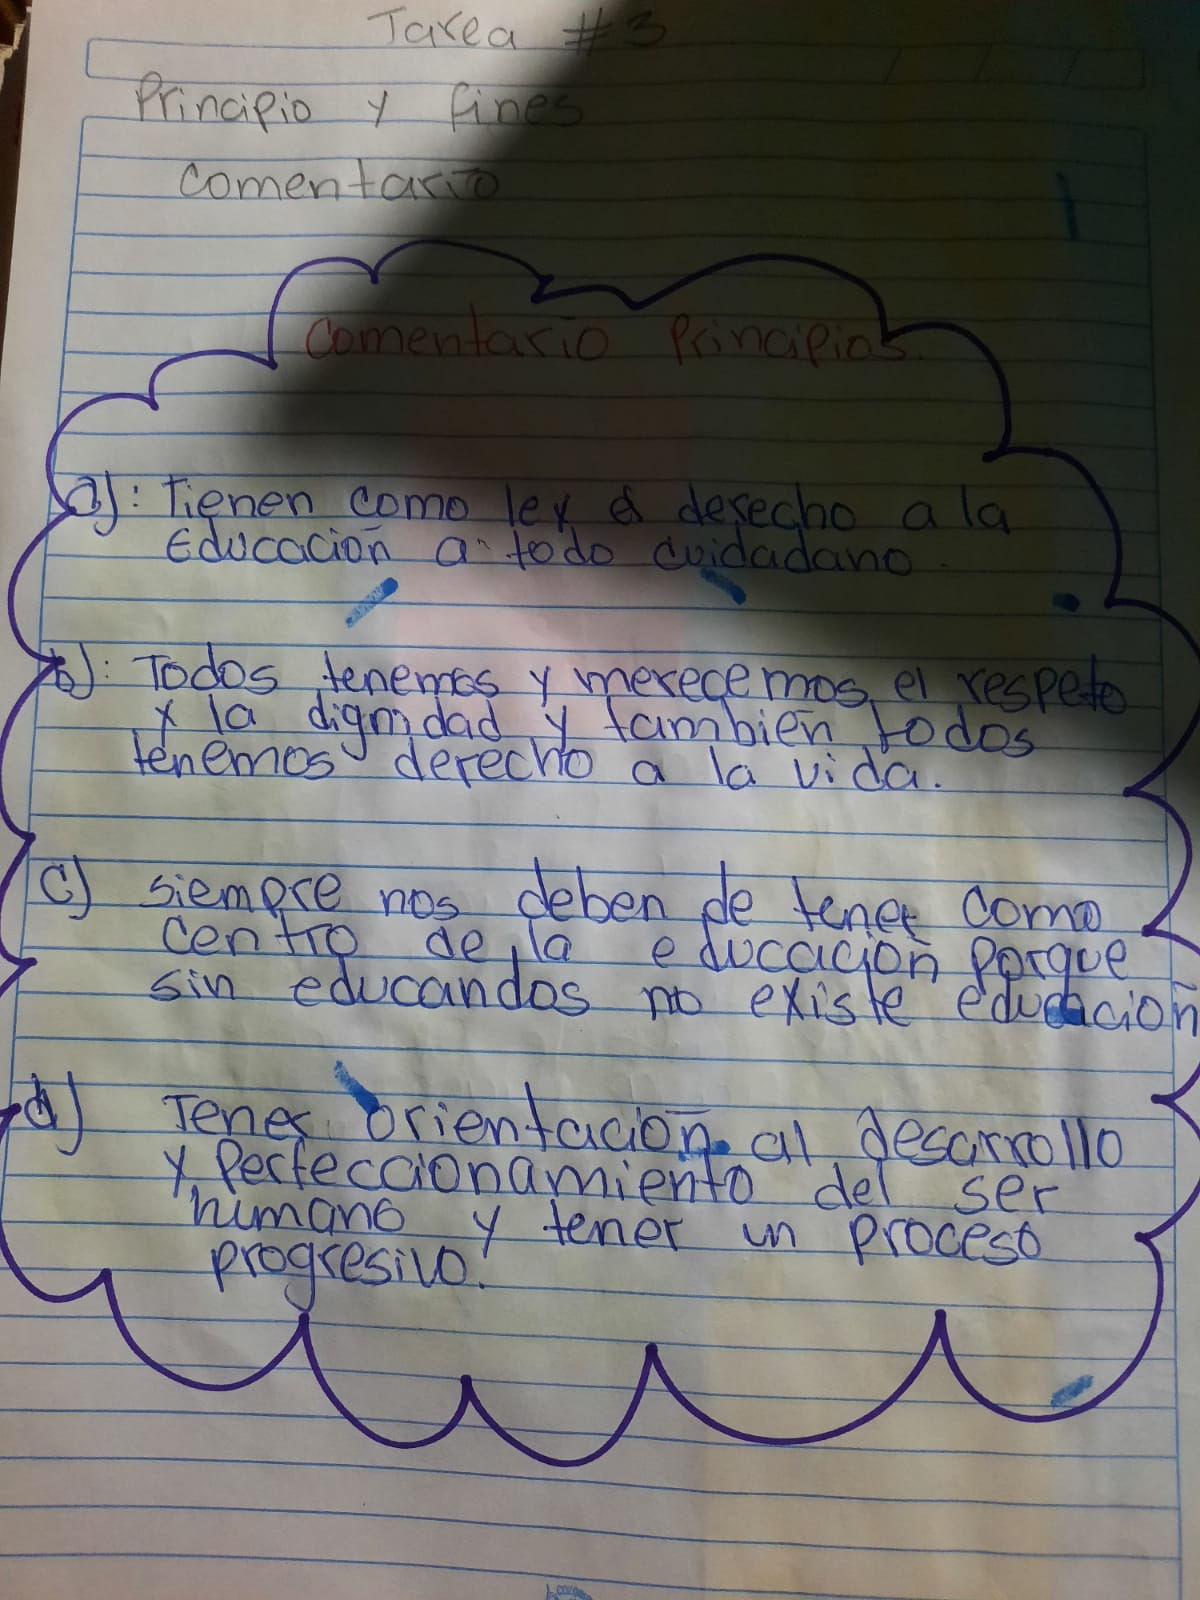 Tarea #3
Principio y fines
comentario
Comentario Principios.
a): Tienen como ley el derecho a la
Educación a todo cuidadano.
b): Todos tenemos y merecemos el respeto
y la dignidad y también todos
tenemos derecho a la vida.
c) siempre nos deben de tener como
centro de la educación porque
sin educandos no existe educación
d) Tener orientación al desarrollo
y perfeccionamiento del ser
humano y tener un proceso
progresivo.